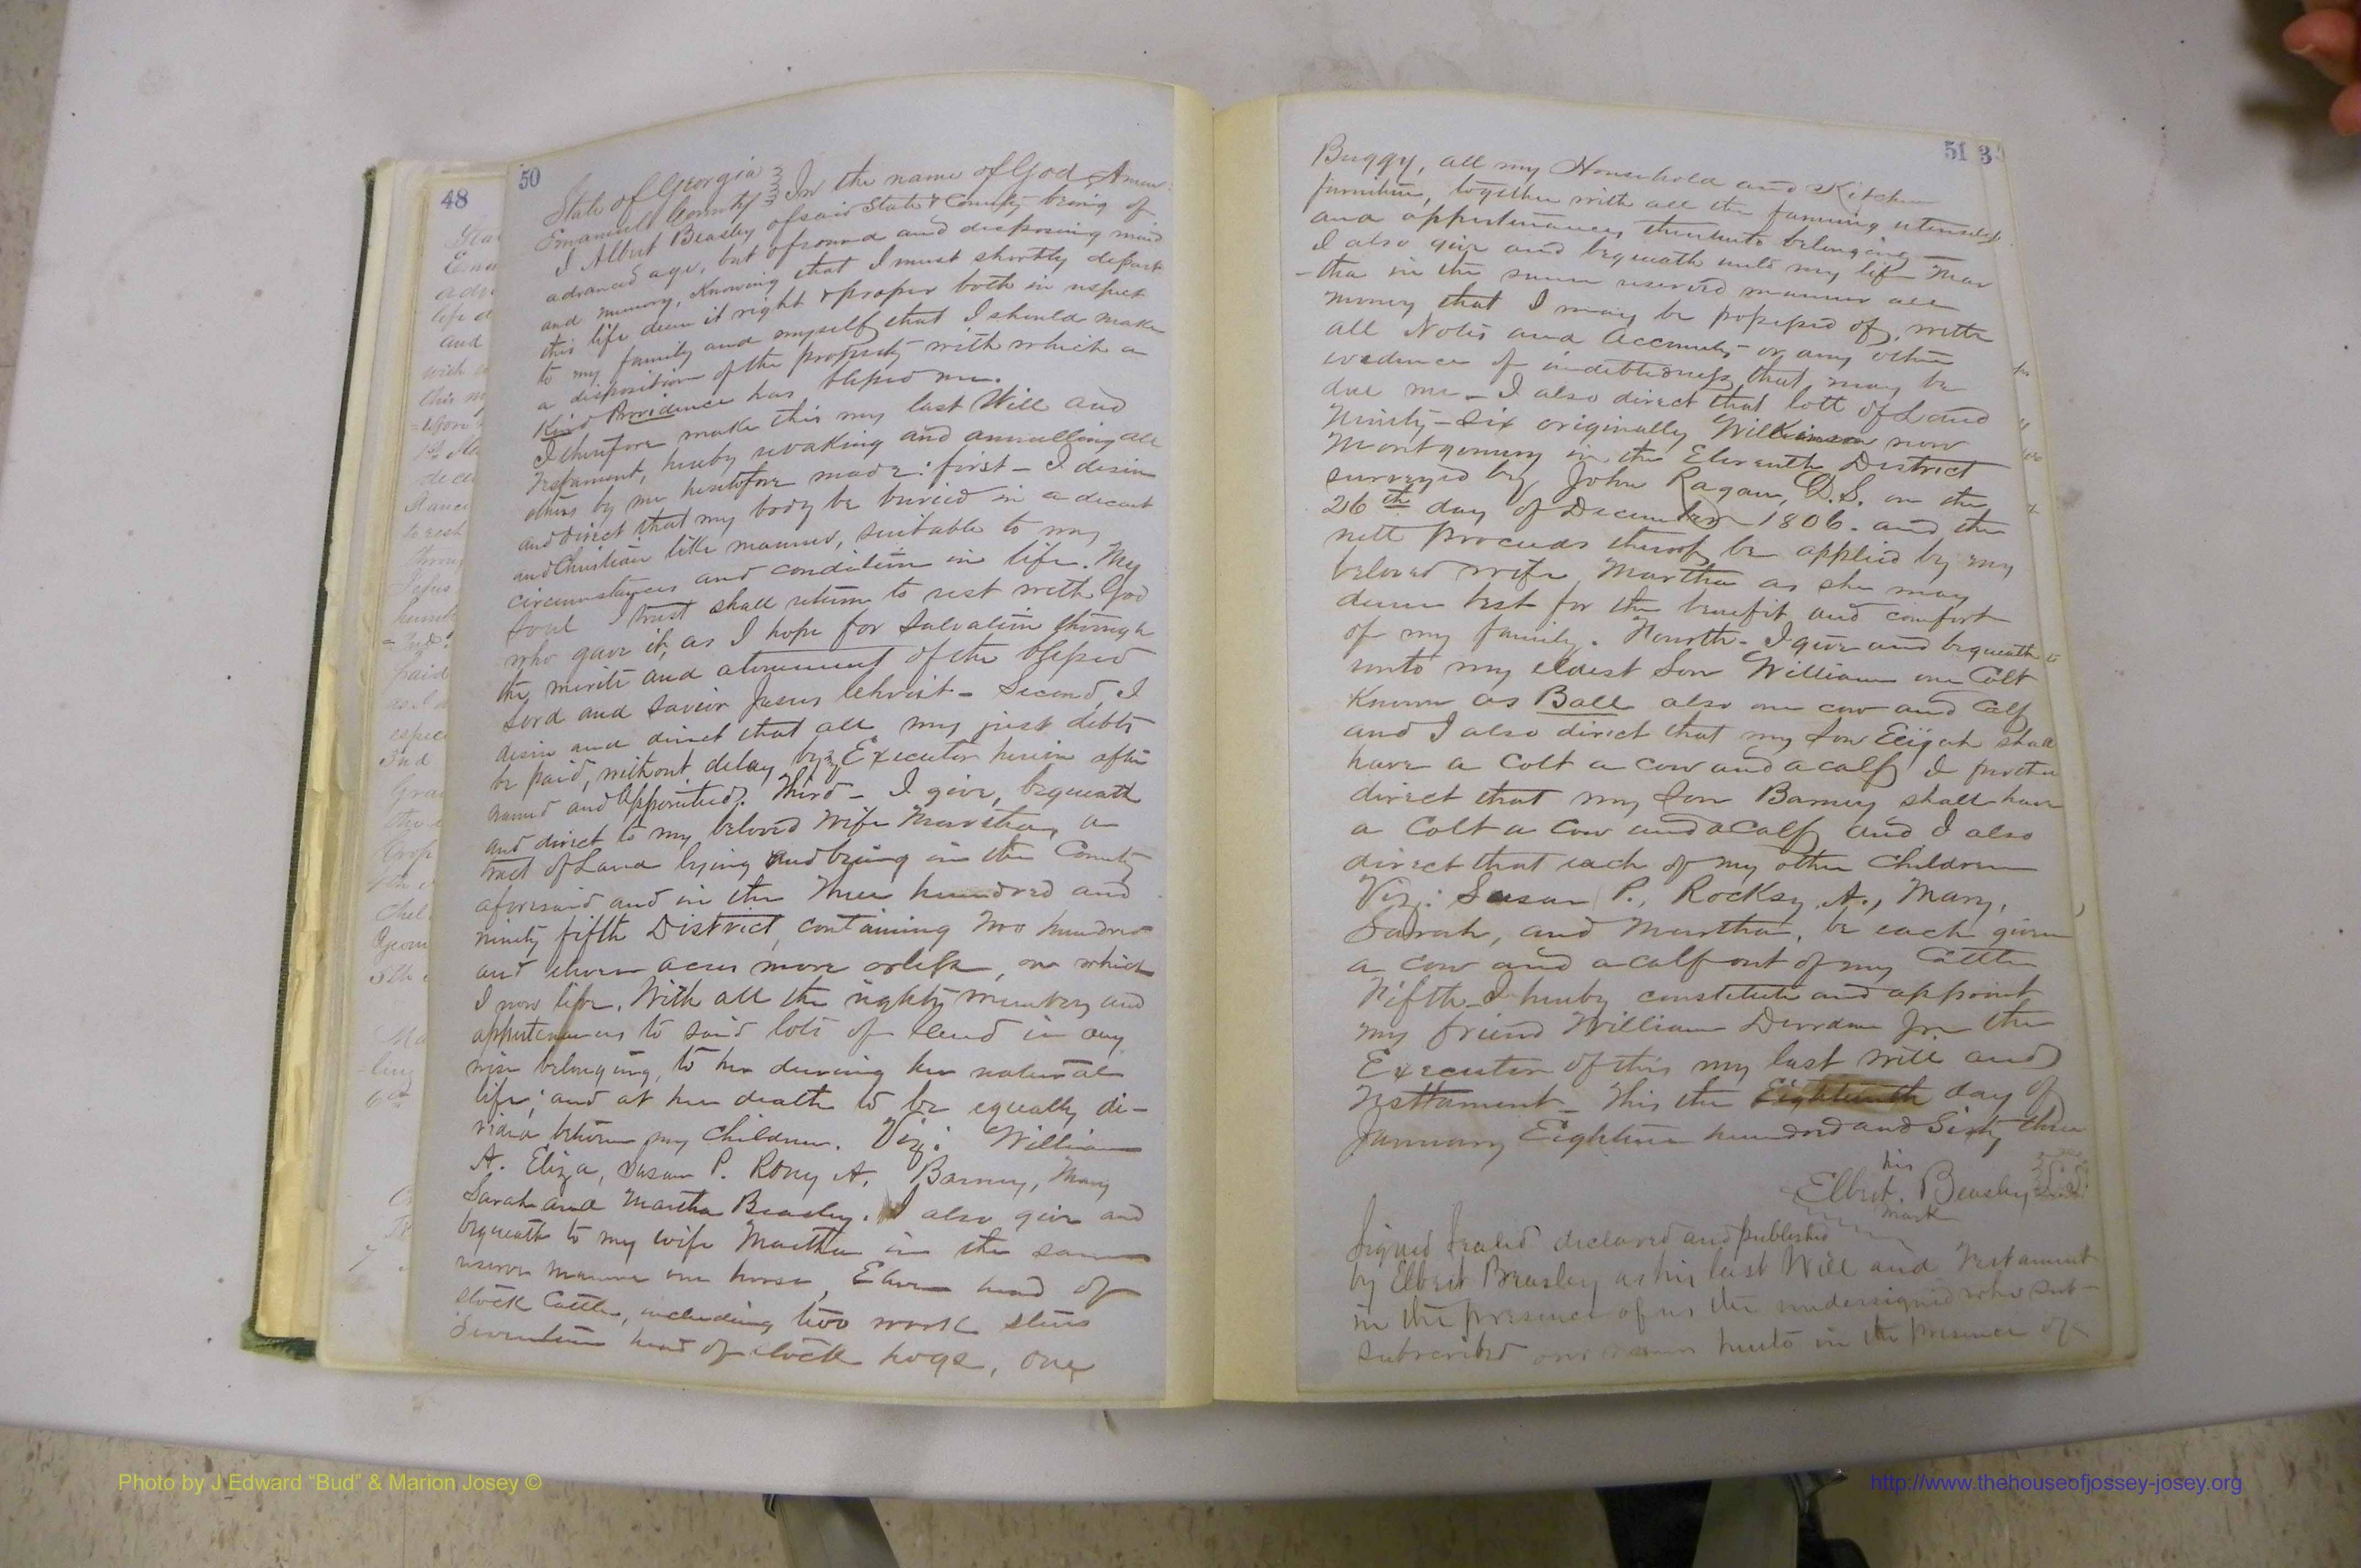 48
50
State of Georgia
Emanuel County In the name of God Amen
I Albert Beasley of said State & County being of
advanced age, but of sound and disposing mind
and memory, Knowing that I must shortly depart
this life deem it right & proper both in respect
to my family and myself that I should make
a disposition of the property with which a
Kind Providence has blessed me.
I therefore make this my last Will and
Testament, hereby revoking and annulling all
others by me heretofore made: first - I desire
and direct that my body be buried in a decent
and Christian like manner, suitable to my
circumstances and condition in life. My
Soul I trust shall return to rest with God
who gave it, as I hope for Salvation through
the merits and atonement of the blessed
Lord and Savior Jesus Christ - Second, I
desire and direct that all my just debts
be paid, without delay by my Executor herein after
named and appointed. Third - I give, bequeath
and direct to my beloved Wife Martha, a
tract of Land lying and being in the County
aforesaid and in the Three hundred and
ninety fifth District, containing Two hundred
and eleven acres more or less, on which
I now life. With all the rights members and
appurtenances to said lots of land in any
wise belonging, to her during her natural
life; and at her death to be equally di-
vided between my Children. Viz: William
A. Eliza, Susan P. Roxy A. Barney, Mary
Sarah and Martha Beasley. I also give and
bequeath to my wife Martha in the same
reserve manner one horse, Eleven head of
stock Cattle, including two work steers
Seventeen head of stock hogs, one
51 3
Buggy, all my Household and Kitchen
furniture, together with all the farming utensils
and appurtenances thereunto belonging -
I also give and bequeath unto my life Mar
-tha in the same reserved manner all
money that I may be possessed of, with
all Notes and Accounts or any other
evidence of indebtedness that may be
due me - I also direct that lott of Land
Ninity-Six originally Wilkinson now
Montgomery in the Eleventh District
surveyed by John Ragan, D.S. on the
26th day of December 1806. and the
nett Proceeds thereof be applied by my
beloved wife Martha as she may
deem best for the benefit and comfort
of my family. Fourth - I give and bequeath
unto my eldest Son William one Colt
Known as Ball also one cow and Calf
and I also direct that my Son Elijah shall
have a Colt a Cow and a calf I further
direct that my Son Barney shall have
a Colt a Cow and a Calf and I also
direct that each of my other Children
Viz: Susan P., Rocksy A., Mary,
Sarah, and Martha, be each given
a cow and a calf out of my Cattle
Fifth - I hereby constitute and appoint
my friend William Durden Jr the
Executor of this my last will and
Testtament - This the Eighteenth day of
January Eighteen hundred and Sixty three
his
Elbert. Beasley L.S.
mark
Signed Sealed declared and published
by Elbert Beasley as his last Will and Testament
in the presence of us the undersigned who sub-
subscribed our names hereto in the presence of
Photo by J Edward “Bud” & Marion Josey ©
http://www.thehouseofjossey-josey.org